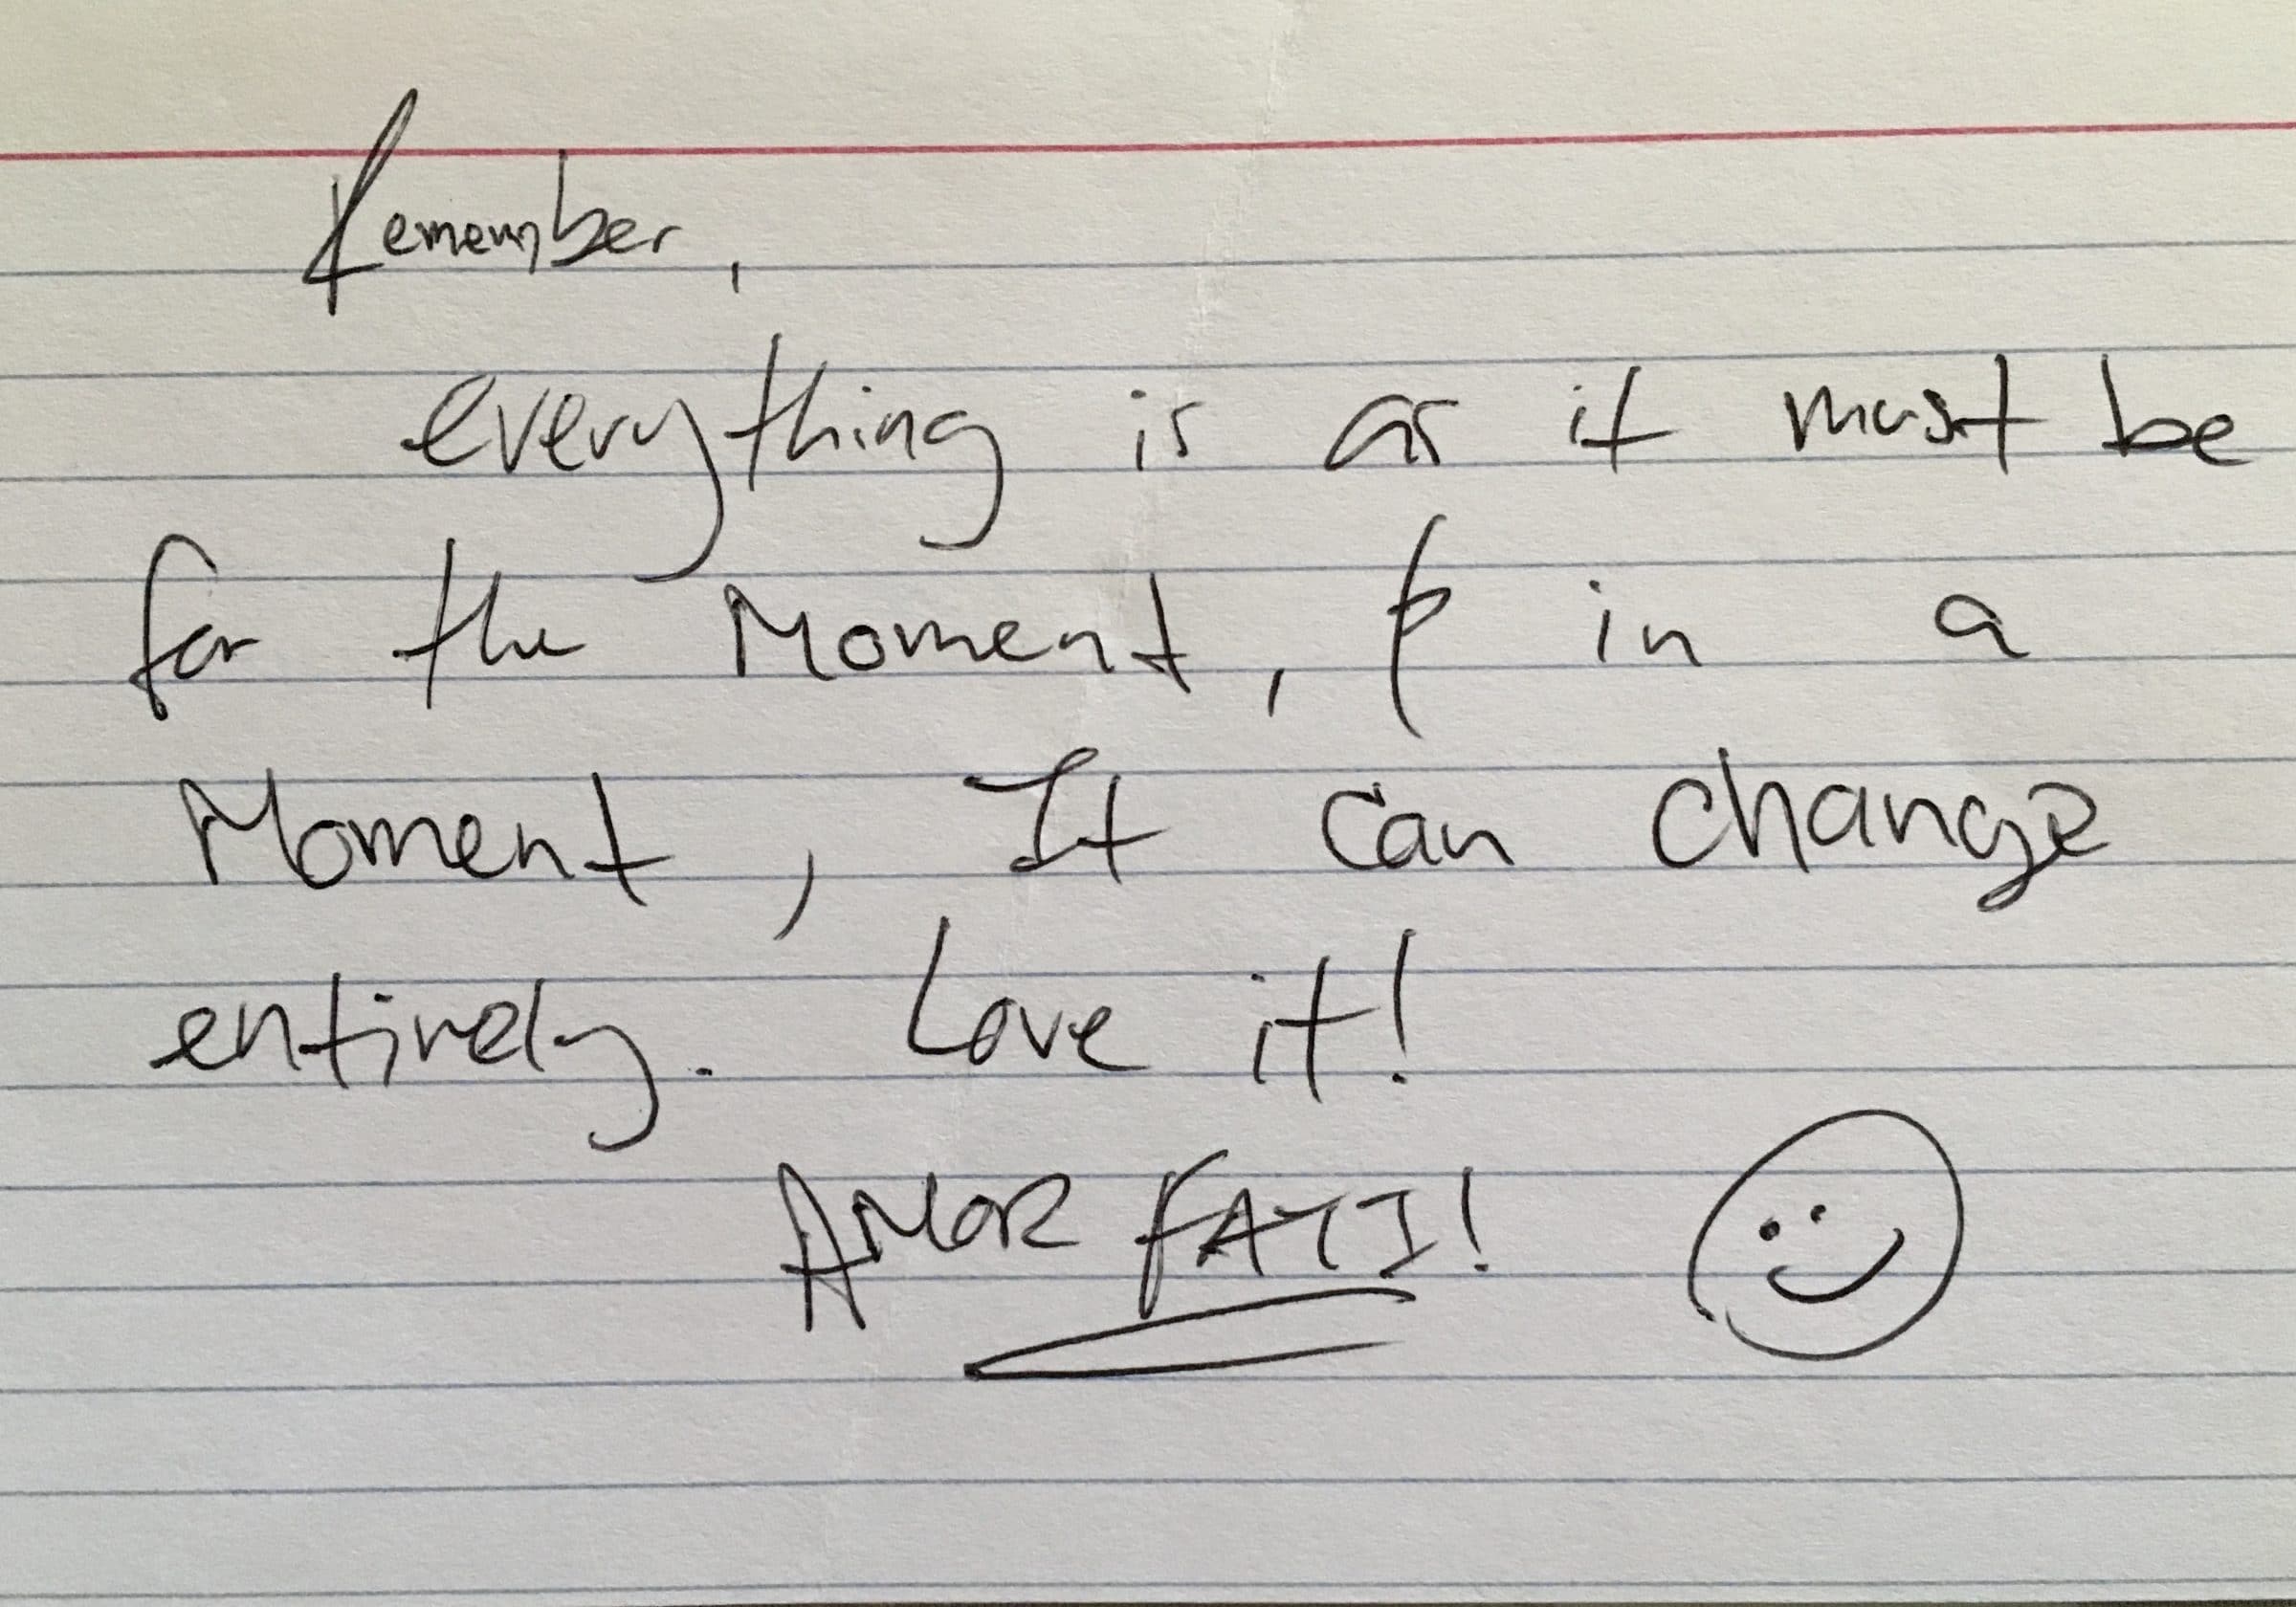 Remember,
everything is as it must be
for the Moment, & in a
Moment, It can change
entirely. Love it!
AMOR FATI!